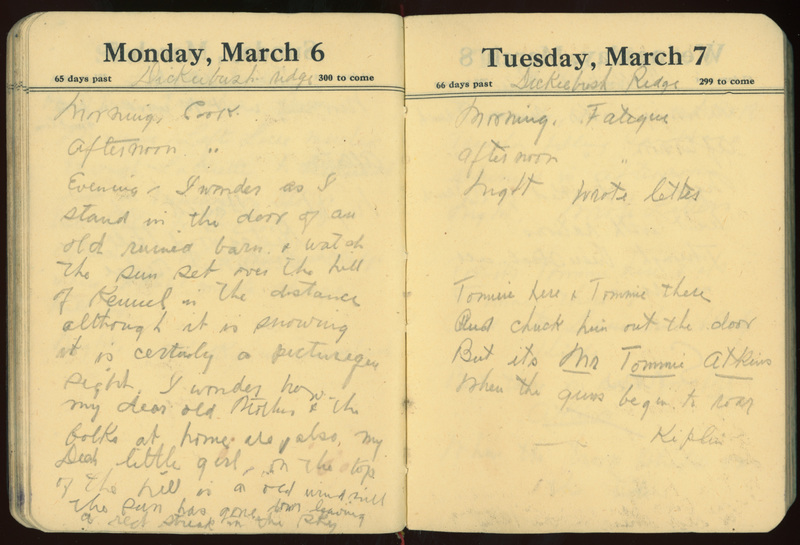 Monday, March 6
65 days past Dickebush ridge 300 to come
Morning, Cook.
Afternoon "
Evening - I wonder as I
stand in the door of an
old ruined barn & watch
the sun set over the hill
of Kemmel in the distance
although it is snowing
it is certainly a picturesque
sight. I wonder how
my dear old Mother & the
folks at home are, also, my
Dear little girl, on the top
of the hill is a old wind mill
the sun has gone down leaving
a red streak in the sky
Tuesday, March 7
66 days past Dickebush Ridge 299 to come
Morning. Fatigue
afternoon "
Night wrote letters
Tommie here & Tommie there
And chuck him out the door
But its Mr Tommie Atkins
When the guns begin to roar
Kiplin